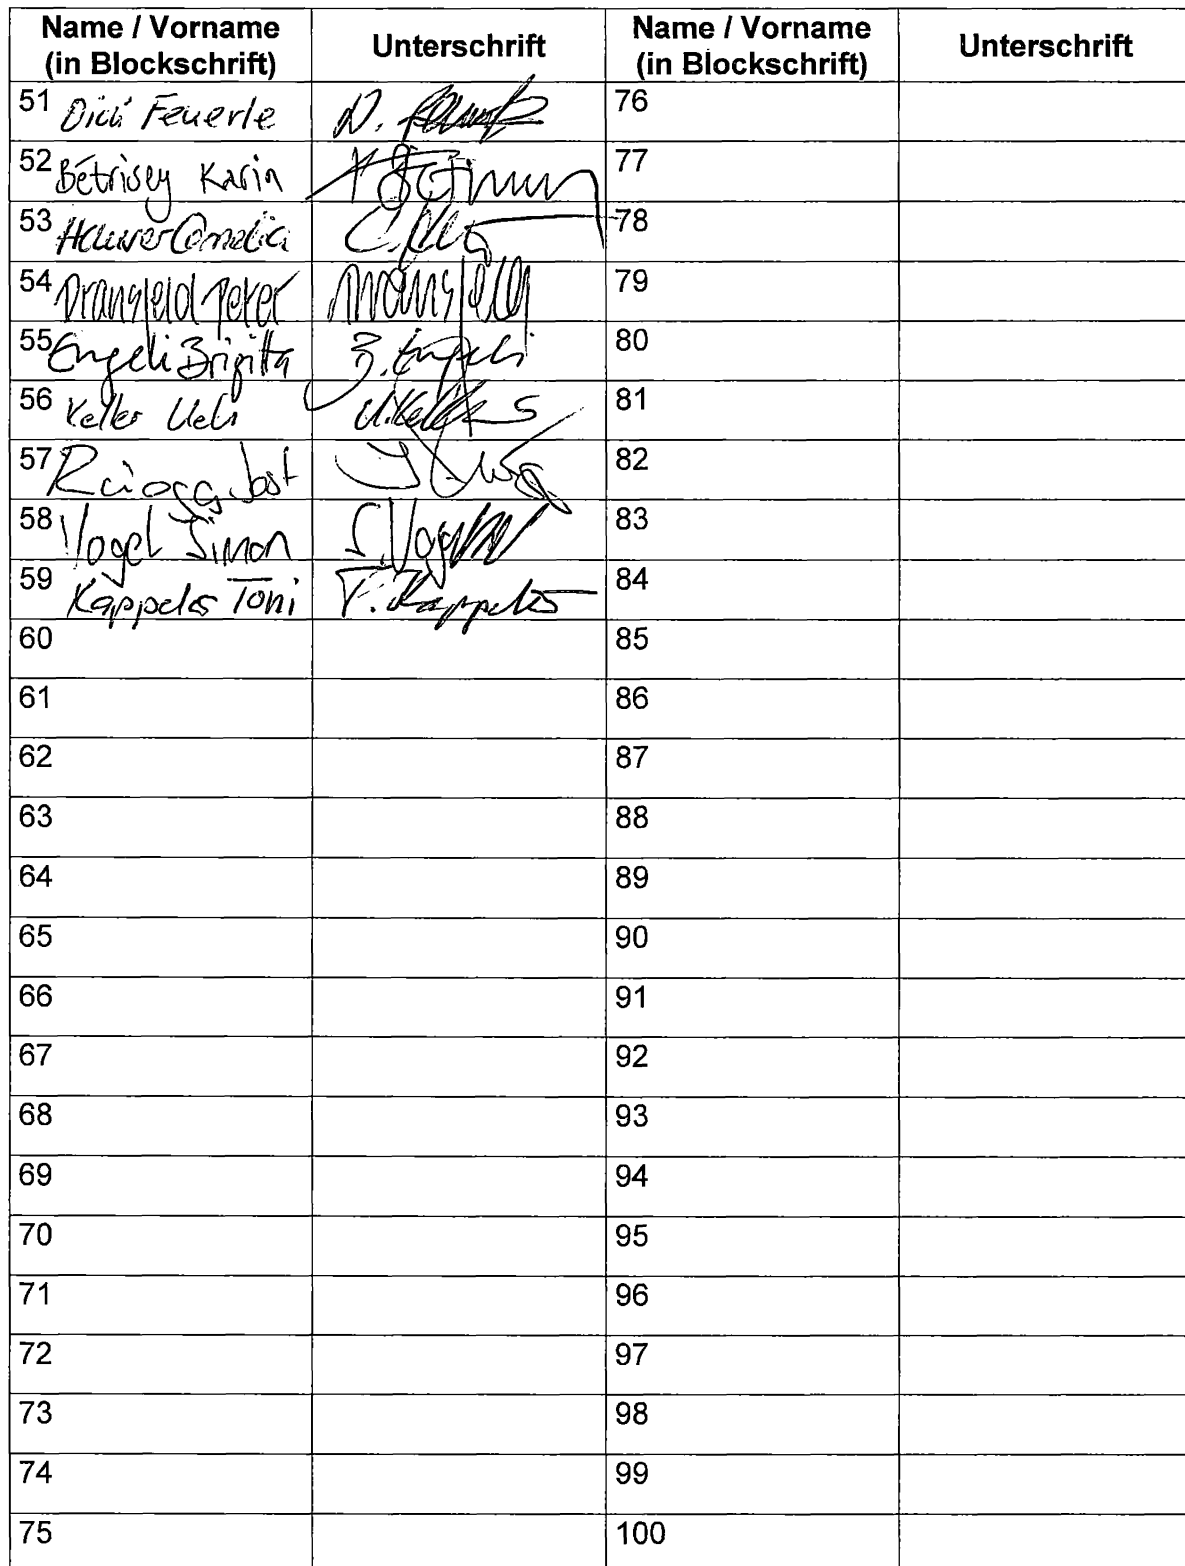 Name / Vorname (in Blockschrift) Unterschrift Name / Vorname (in Blockschrift) Unterschrift
51 Feuerle D. 76
52 Bétrisey Karin 77
53 Hauser Cornelia 78
54 Dransfeld Peter 79
55 Engeli Brigitta B. Engeli 80
56 Keller Ueli U. Keller 81
57 Rüegg Jost 82
58 Vogel Simon S. Vogel 83
59 Kappeler Toni T. Kappeler 84
60 85
61 86
62 87
63 88
64 89
65 90
66 91
67 92
68 93
69 94
70 95
71 96
72 97
73 98
74 99
75 100